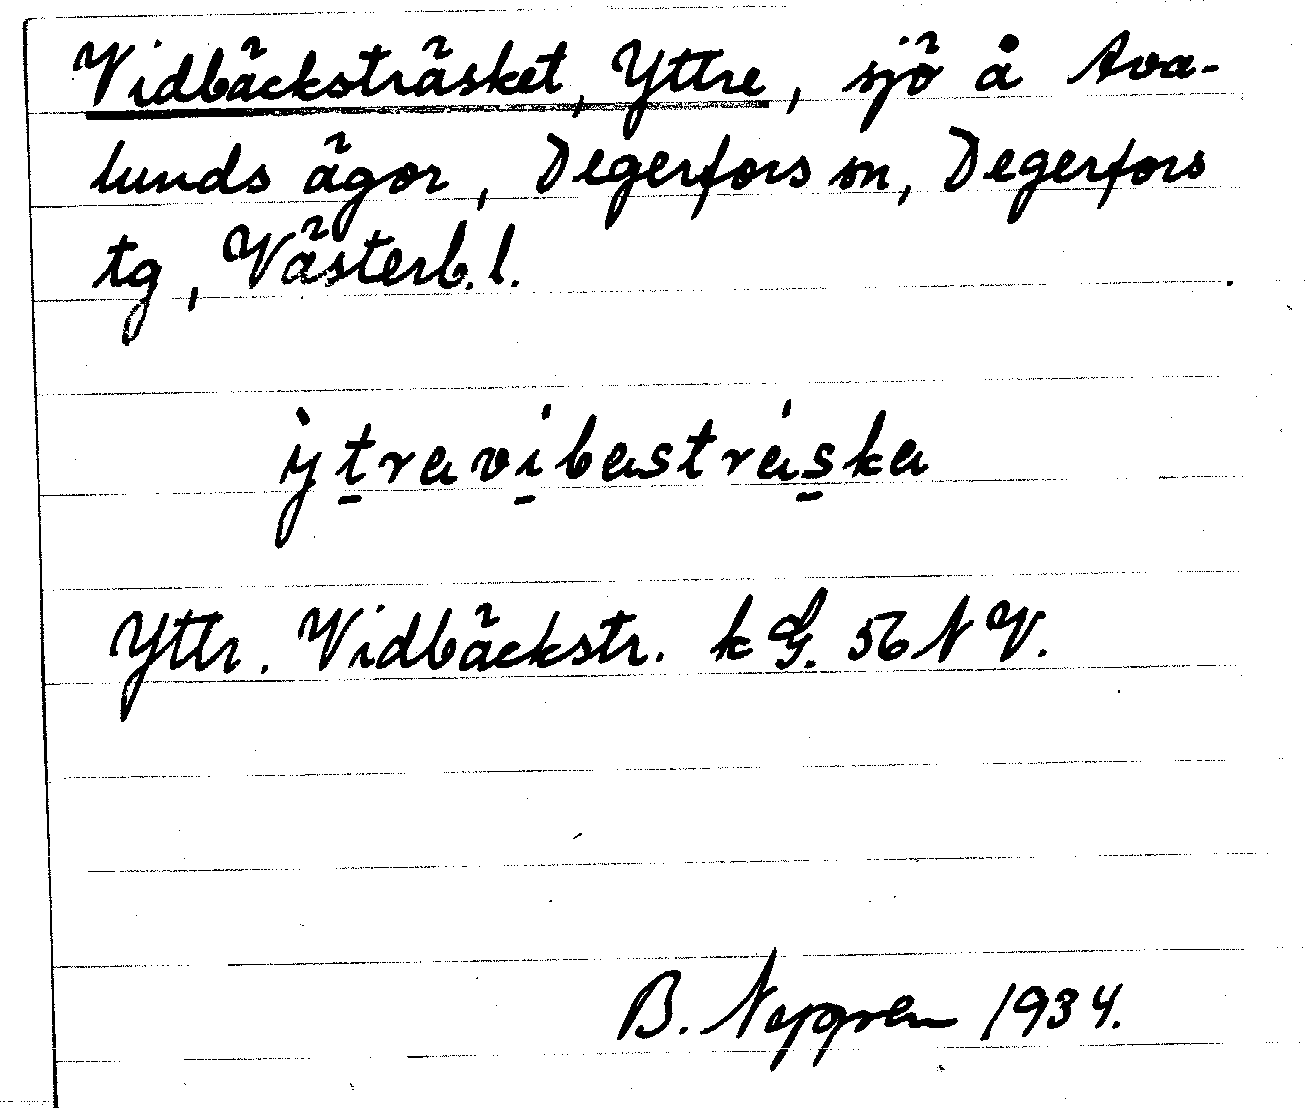 Vidbäcksträsket, Yttre, sjö å Ava-
lunds ägor, Degerfors sn, Degerfors
tg, Västerb. l.
ytravibastraska
Yttr. Vidbäckstr. k G. 56 NV.
B. 1934.